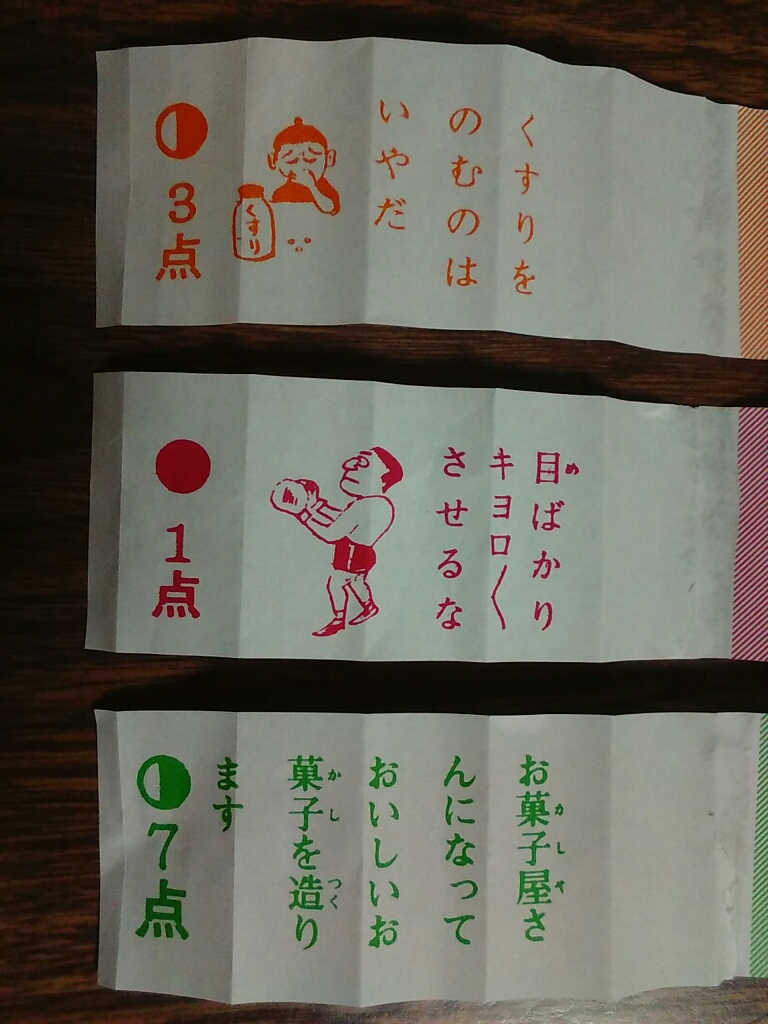 くすりを
のむのは
いやだ
くすり
3点
目ばかり
め
キヨロ〱
させるな
1
1点
お菓子屋さ
かしや
んになって
おいしいお
菓子を造り
かし
つく
ます
7点